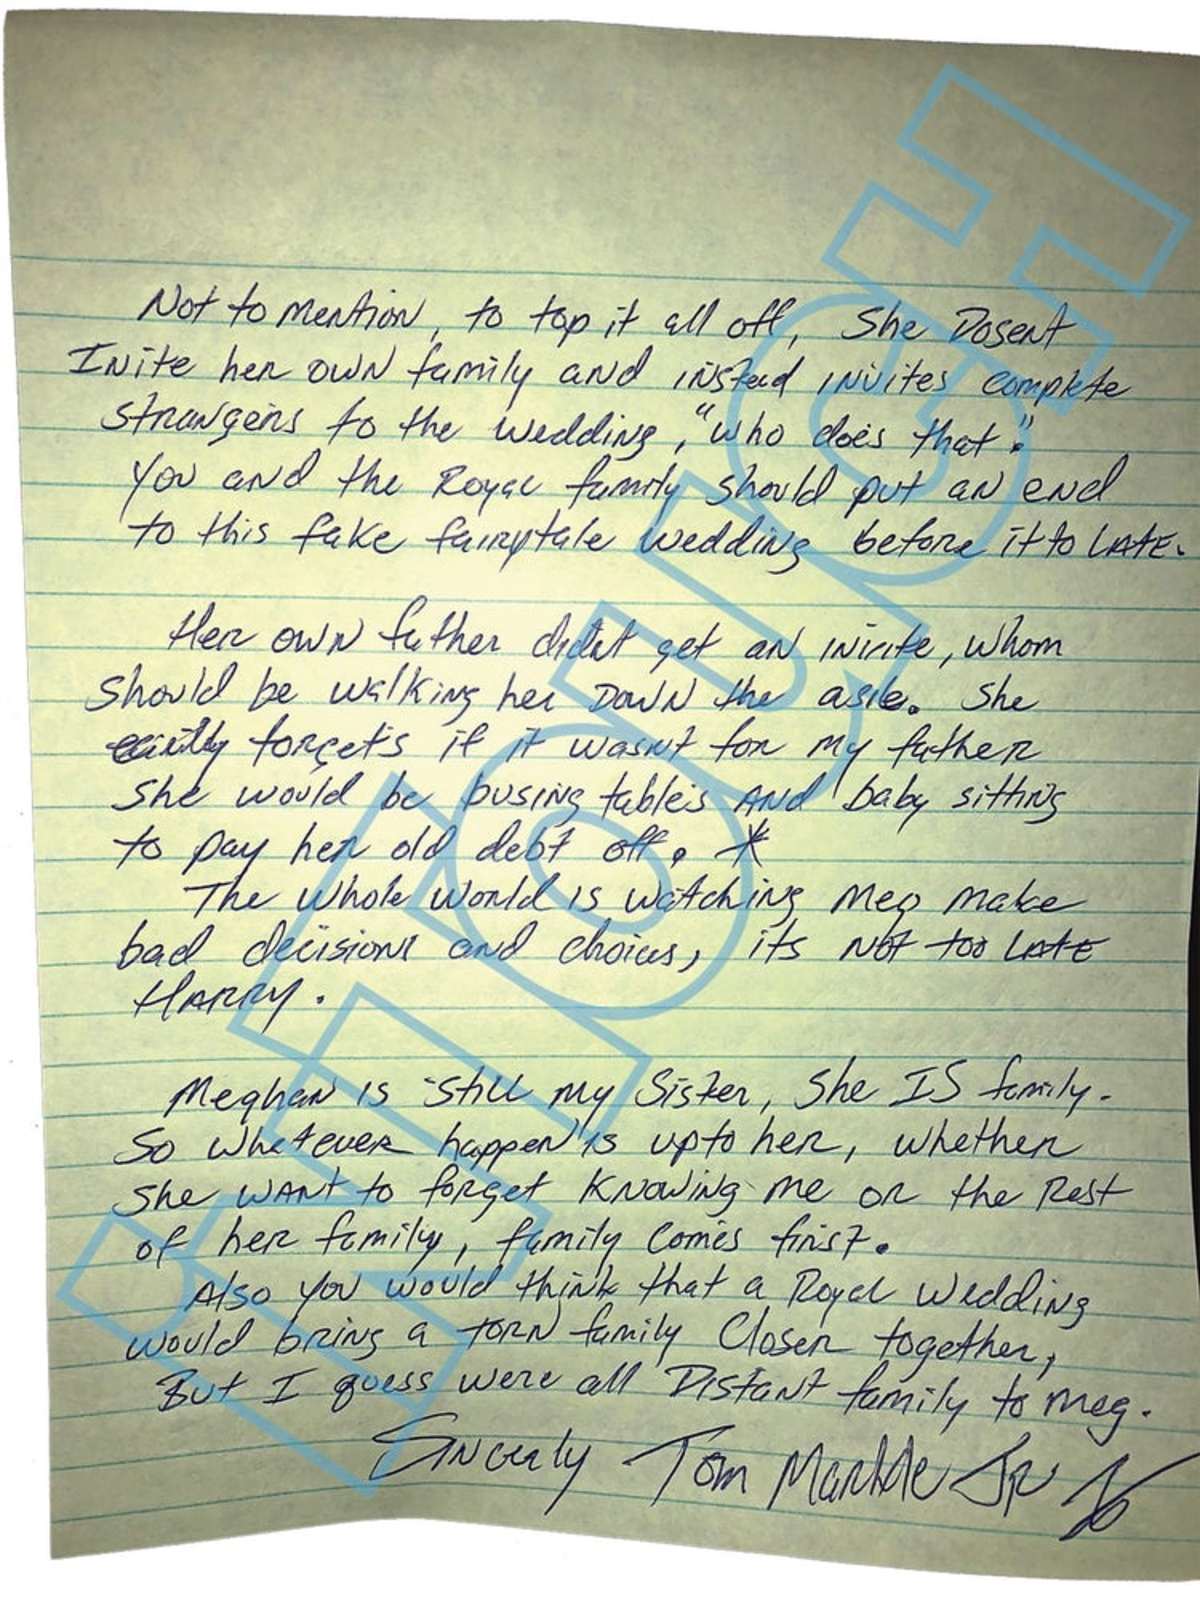 Not to mention, to top it all off, She Dosent
Inite her own family and instead invites complete
strangers to the wedding, "who does that".
You and the Royal family should put an end
to this fake fairytale wedding before it to LATE.
Her own father didnt get an invite, whom
should be walking her DOWN the asile. She
forgets if it wasnt for my father
She would be busing tables AND baby sitting
to pay her old debt off. *
The whole world is watching Meg make
bad decisions and choices, its NOT too LATE
HARRY.
Meghan is still my Sister, She IS family.
So whatever happen is up to her, whether
She want to forget knowing me or the Rest
of her family, family comes first.
Also you would think that a Royal wedding
would bring a torn family closer together,
But I guess were all Distant family to meg.
Sincerly Tom Markle Jr
IN TOUCH